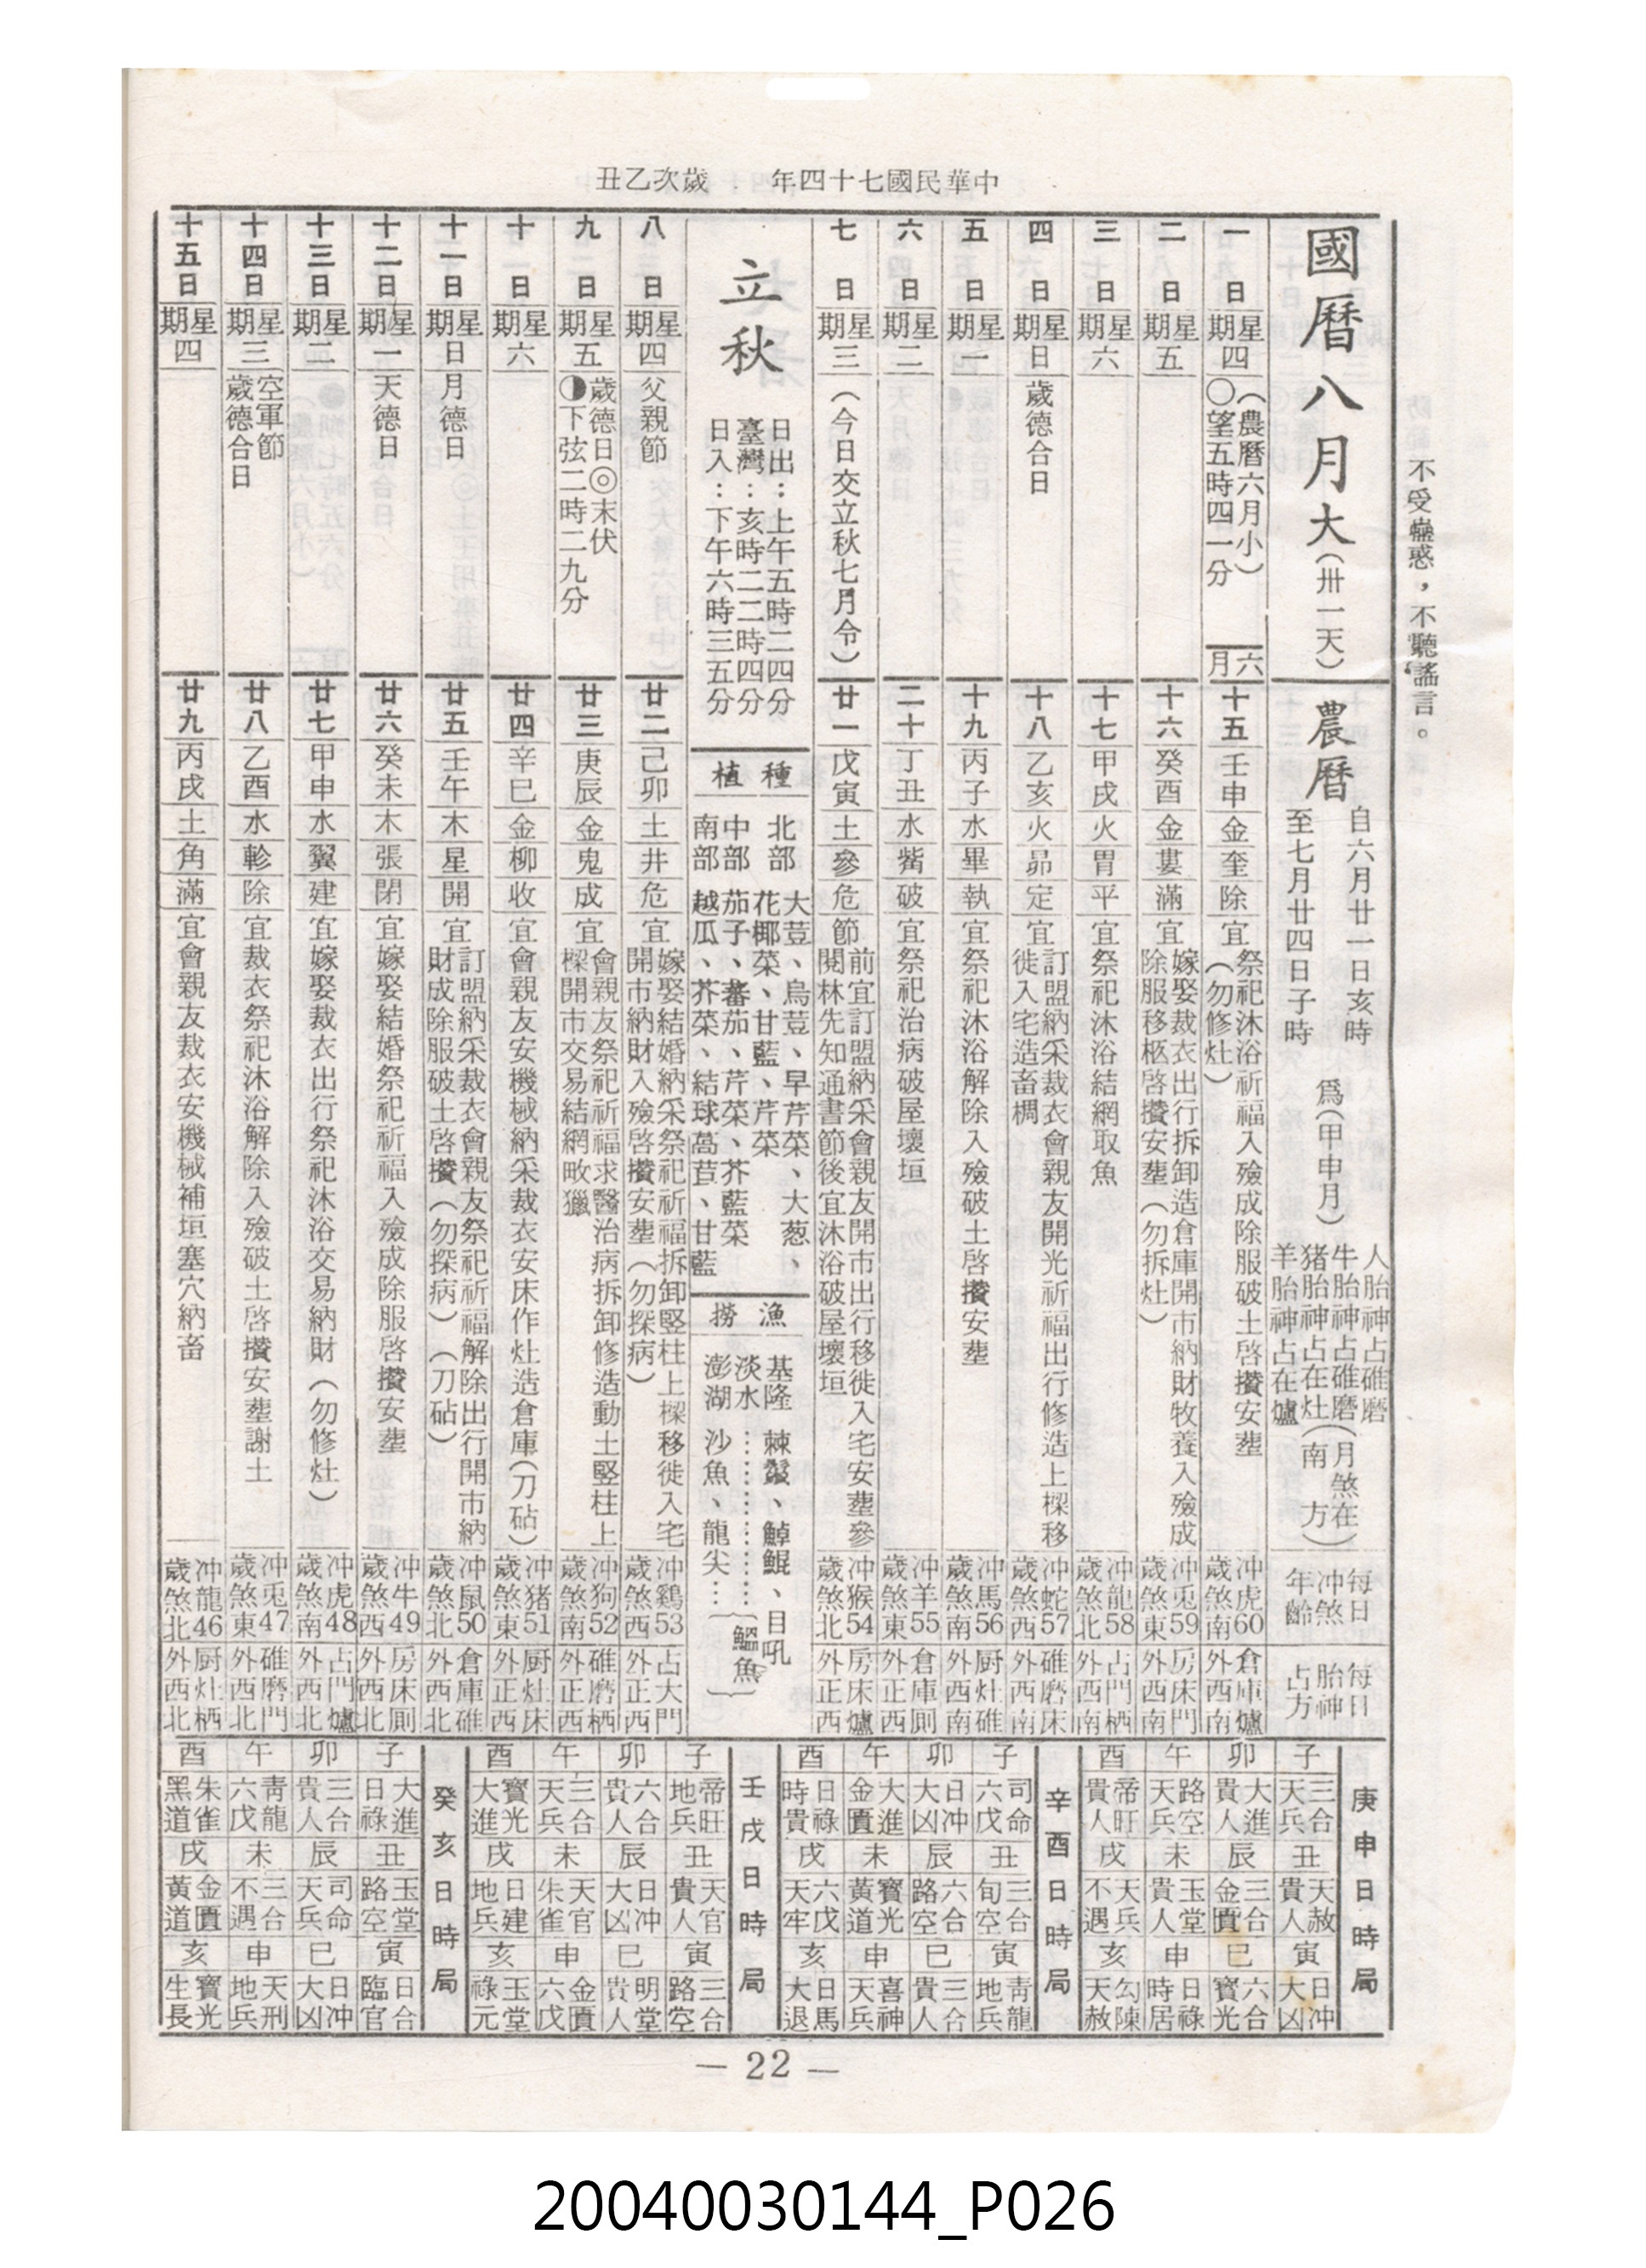 中華民國七十四年　歲次乙丑
不受蠱惑，不聽謠言。
國曆八月大（卅一天）
農曆
自六月廿一日亥時
至七月廿四日子時
爲（甲申月）
人胎神占碓磨
牛胎神占碓磨（月煞在
猪胎神占在灶（南　方）
羊胎神占在爐
每日冲煞年齡
每日胎神占方
一日 星期四 （農曆六月小） 〇望五時四一分 六月 十五 壬申 金 奎 除 宜祭祀沐浴祈福入殮成除服破土啓攢安葬（勿修灶） 冲虎60歲煞南 倉庫爐外西南
二日 星期五 十六 癸酉 金 婁 滿 宜嫁娶裁衣出行拆卸造倉庫開市納財牧養入殮成除服移柩啓攢安葬（勿拆灶） 冲兎59歲煞東 房床門外西南
三日 星期六 十七 甲戌 火 胃 平 宜祭祀沐浴結網取魚 冲龍58歲煞北 占門栖外西南
四日 星期日 歲德合日 十八 乙亥 火 昴 定 宜訂盟納采裁衣會親友開光祈福出行修造上樑移徙入宅造畜椆 冲蛇57歲煞西 碓磨床外西南
五日 星期一 十九 丙子 水 畢 執 宜祭祀沐浴解除入殮破土啓攢安葬 冲馬56歲煞南 厨灶碓外西南
六日 星期二 二十 丁丑 水 觜 破 宜祭祀治病破屋壞垣 冲羊55歲煞東 倉庫厠外正西
七日 星期三 （今日交立秋七月令） 廿一 戊寅 土 參 危 節前宜訂盟納采會親友開市出行移徙入宅安葬參閱林先知通書節後宜沐浴破屋壞垣 冲猴54歲煞北 房床爐外正西
立秋
日出：上午五時二四分
臺灣：亥時二二時四分
日入：下午六時三五分
種植
北部 大荳、烏荳、早芹菜、大葱、花椰菜、甘藍、芹菜
中部 茄子、蕃茄、芹菜、芥藍菜
南部 越瓜、芥菜、結球萵苣、甘藍
漁撈
基隆 棘鬣、鯙鯤、目吼
淡水…………（鰮魚）
澎湖 沙魚、龍尖…
八日 星期四 父親節 廿二 己卯 土 井 危 宜嫁娶結婚納采祭祀祈福拆卸竪柱上樑移徙入宅開市納財入殮啓攢安葬（勿探病） 冲鷄53歲煞西 占大門外正西
九日 星期五 歲德日◎末伏 ◑下弦二時二九分 廿三 庚辰 金 鬼 成 宜會親友祭祀祈福求醫治病拆卸修造動土竪柱上樑開市交易結網畋獵 冲狗52歲煞南 碓磨栖外正西
十日 星期六 廿四 辛巳 金 柳 收 宜會親友安機械納采裁衣安床作灶造倉庫（刀砧） 冲猪51歲煞東 厨灶床外正西
十一日 星期日 月德日 廿五 壬午 木 星 開 宜訂盟納采裁衣會親友祭祀祈福解除出行開市納財成除服破土啓攢（勿探病）（刀砧） 冲鼠50歲煞北 倉庫碓外西北
十二日 星期一 天德日 廿六 癸未 木 張 閉 宜嫁娶結婚祭祀祈福入殮成除服啓攢安葬 冲牛49歲煞西 房床厠外西北
十三日 星期二 廿七 甲申 水 翼 建 宜嫁娶裁衣出行祭祀沐浴交易納財（勿修灶） 冲虎48歲煞南 占門爐外西北
十四日 星期三 空軍節 歲德合日 廿八 乙酉 水 軫 除 宜裁衣祭祀沐浴解除入殮破土啓攢安葬謝土 冲兎47歲煞東 碓磨門外西北
十五日 星期四 廿九 丙戌 土 角 滿 宜會親友裁衣安機械補垣塞穴納畜 冲龍46歲煞北 厨灶栖外西北
庚申日時局
子 三合天兵 丑 天赦貴人 寅 日冲大凶
卯 大進貴人 辰 三合金匱 巳 六合寳光
午 路空天兵 未 玉堂貴人 申 日祿時居
酉 帝旺貴人 戌 天兵不遇 亥 勾陳天赦
辛酉日時局
子 司命六戊 丑 三合旬空 寅 靑龍地兵
卯 日冲大凶 辰 六合路空 巳 三合貴人
午 大進金匱 未 寳光黃道 申 喜神天兵
酉 日祿時貴 戌 六戊天牢 亥 日馬大退
壬戌日時局
子 帝旺地兵 丑 天官貴人 寅 三合路空
卯 六合貴人 辰 日冲大凶 巳 明堂貴人
午 三合天兵 未 天官朱雀 申 金匱六戊
酉 寳光大進 戌 日建地兵 亥 玉堂祿元
癸亥日時局
子 大進日祿 丑 玉堂路空 寅 日合臨官
卯 三合貴人 辰 司命天兵 巳 日冲大凶
午 靑龍六戊 未 三合不遇 申 天刑地兵
酉 朱雀黑道 戌 金匱黃道 亥 寳光生長
— 22 —
20040030144_P026